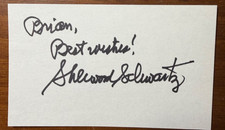 Brian,
Best wishes!
Sherwood Schwartz